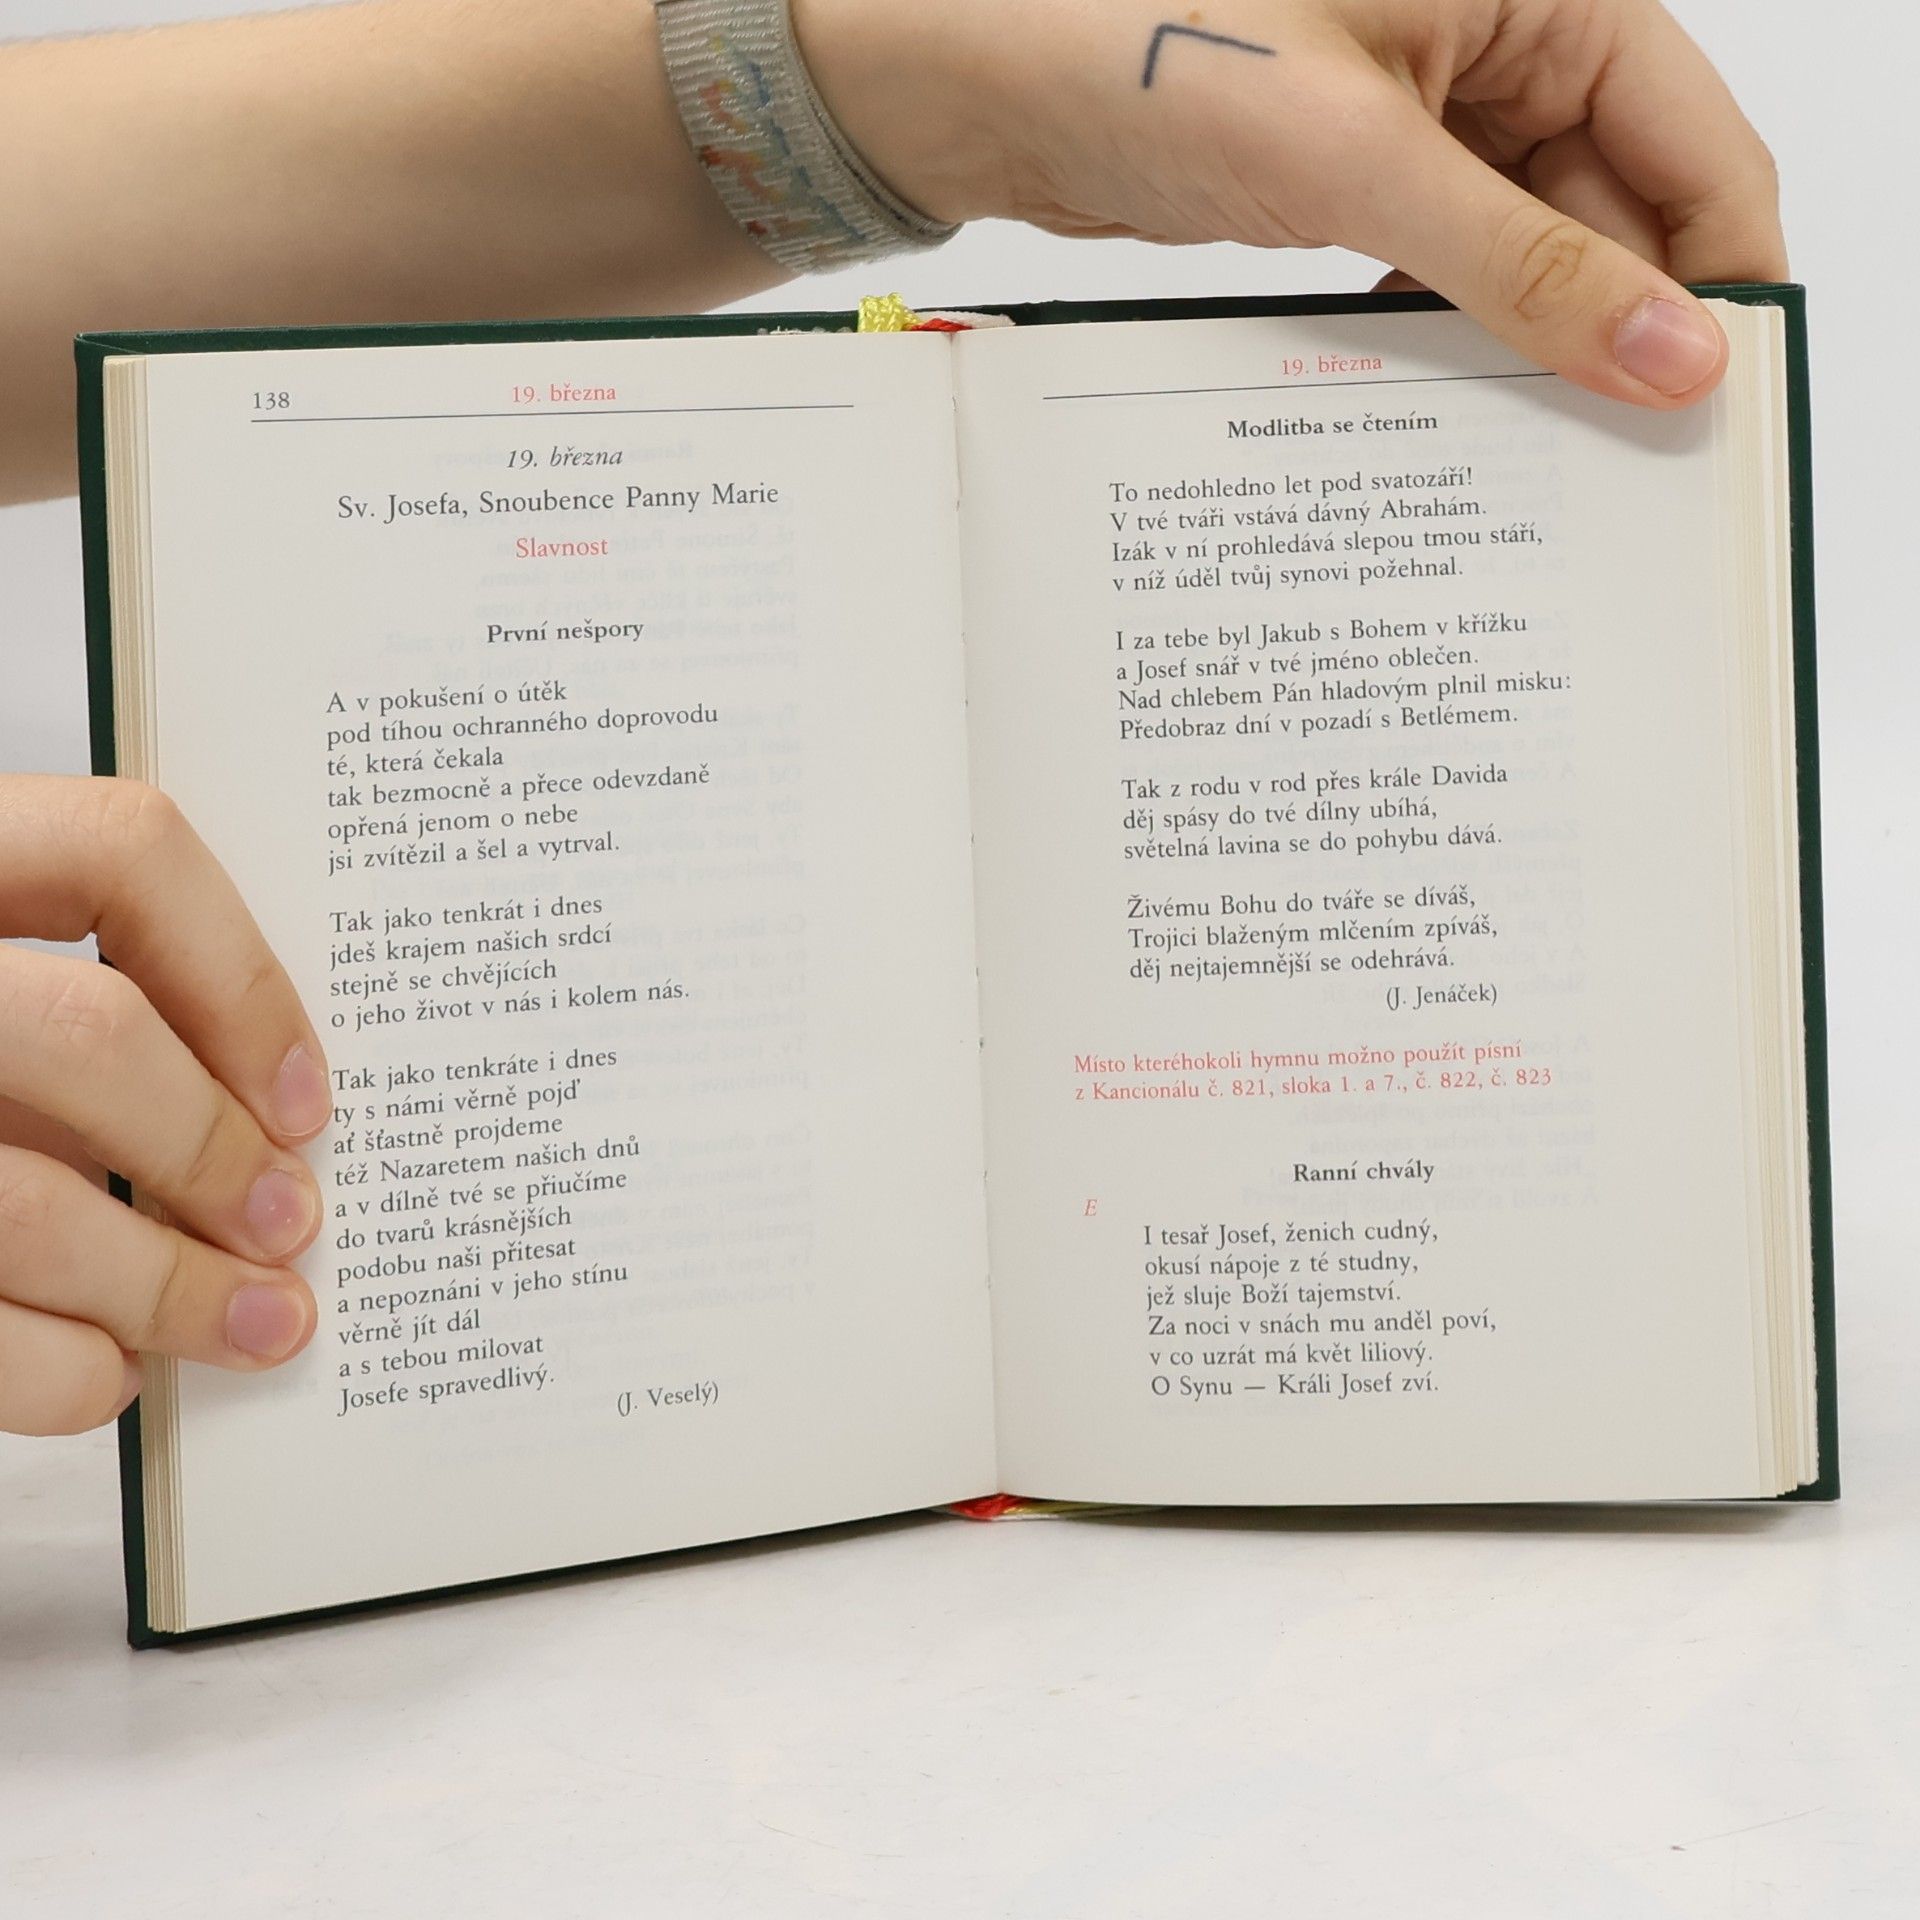 138
19. března
19. března
Sv. Josefa, Snoubence Panny Marie
Slavnost
První nešpory
A v pokušení o útěk
pod tíhou ochranného doprovodu
té, která čekala
tak bezmocně a přece odevzdaně
opřená jenom o nebe
jsi zvítězil a šel a vytrval.
Tak jako tenkrát i dnes
jdeš krajem našich srdcí
stejně se chvějících
o jeho život v nás i kolem nás.
Tak jako tenkráte i dnes
ty s námi věrně pojď
ať šťastně projdeme
též Nazaretem našich dnů
a v dílně tvé se přiučíme
do tvarů krásnějších
podobu naši přitesat
a nepoznáni v jeho stínu
věrně jít dál
a s tebou milovat
Josefe spravedlivý.
(J. Veselý)
19. března
Modlitba se čtením
To nedohledno let pod svatozáří!
V tvé tváři vstává dávný Abrahám.
Izák v ní prohledává slepou tmou stáří,
v níž úděl tvůj synovi požehnal.
I za tebe byl Jakub s Bohem v křížku
a Josef snář v tvé jméno oblečen.
Nad chlebem Pán hladovým plnil misku:
Předobraz dní v pozadí s Betlémem.
Tak z rodu v rod přes krále Davida
děj spásy do tvé dílny ubíhá,
světelná lavina se do pohybu dává.
Živému Bohu do tváře se díváš,
Trojici blaženým mlčením zpíváš,
děj nejtajemnější se odehrává.
(J. Jenáček)
Místo kteréhokoli hymnu možno použít písní
z Kancionálu č. 821, sloka 1. a 7., č. 822, č. 823
Ranní chvály
E
I tesař Josef, ženich cudný,
okusí nápoje z té studny,
jež sluje Boží tajemství.
Za noci v snách mu anděl poví,
v co uzrát má květ liliový.
O Synu — Králi Josef zví.